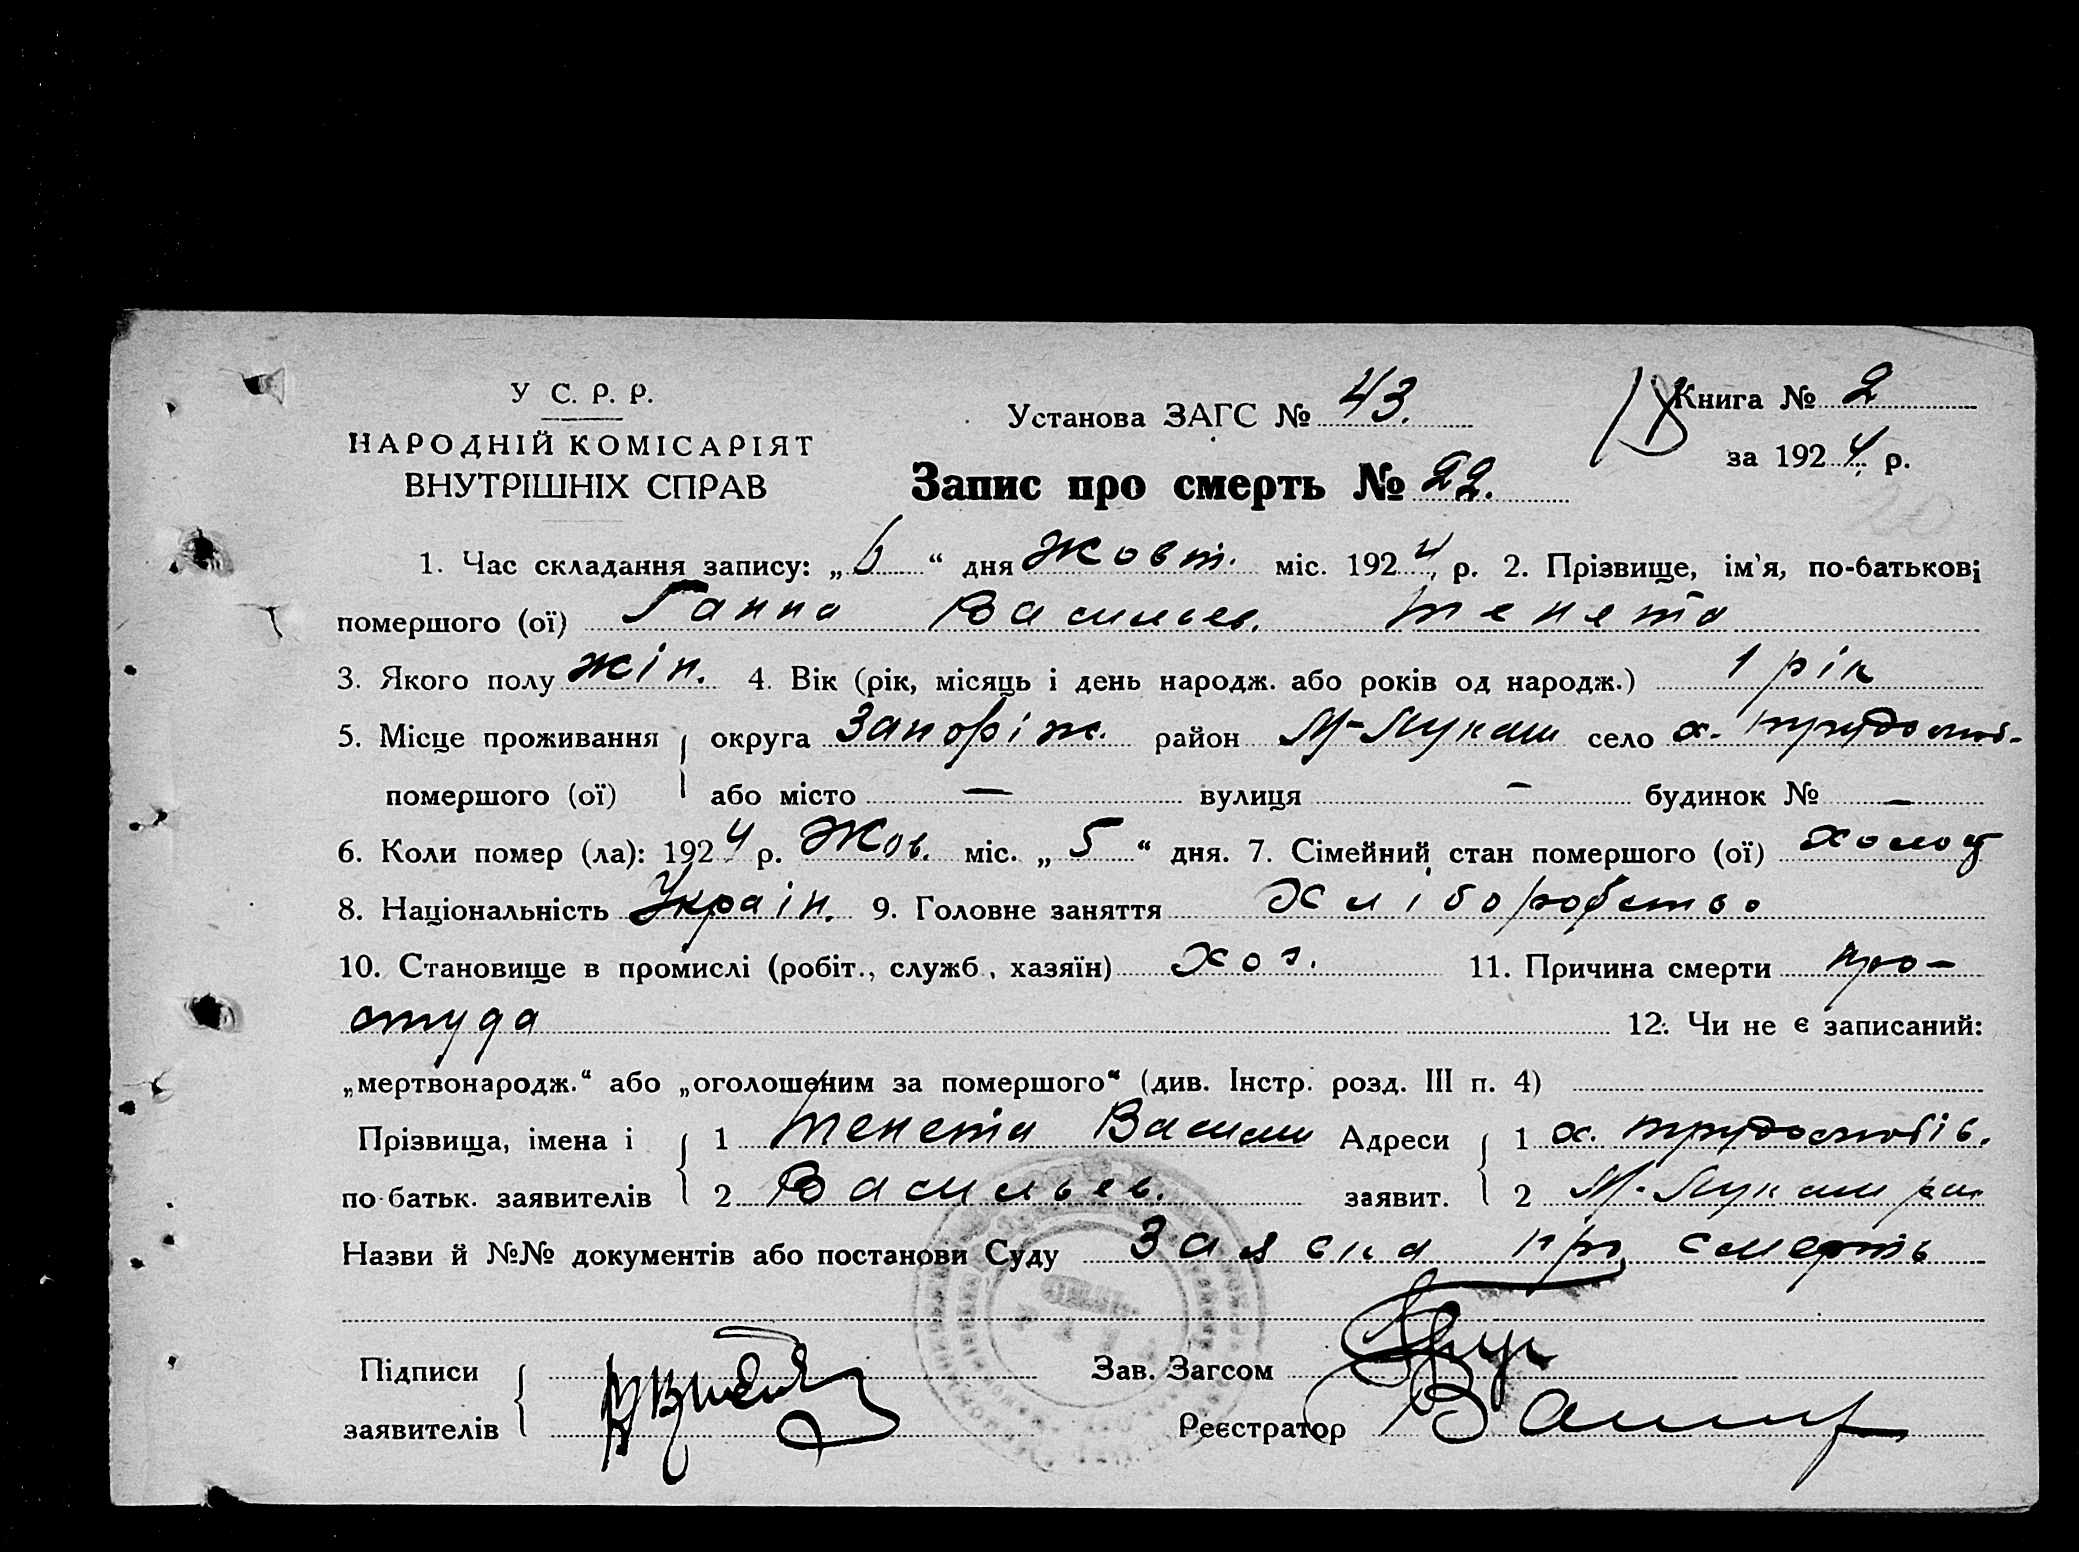 У С. Р. Р.
НАРОДНІЙ КОМІСАРІЯТ
ВНУТРІШНІХ СПРАВ
Установа ЗАГС № 43.
Книга № 2
за 1924 р.
Запис про смерть № 22.
1. Час складання запису: „6“ дня Жовт. міс. 1924, р. 2. Прізвище, ім'я, по-батькові
помершого (ої) Ганна Васильев. Тенета
3. Якого полу жін. 4. Вік (рік, місяць і день народж. або років од народж.) 1 рік
5. Місце проживання округа Запоріж. район М-Лукаш село х.
помершого (ої) або місто — вулиця — будинок № —
6. Коли помер (ла): 1924 р. Жов. міс. „5“ дня. 7. Сімейний стан помершого (ої) холост
8. Національність Україн. 9. Головне заняття Хліборобство
10. Становище в промислі (робіт., служб., хазяїн) хоз. 11. Причина смерти про-
студа 12. Чи не є записаний:
„мертвонародж.“ або „оголошеним за помершого“ (див. Інстр. розд. III п. 4)
Прізвища, імена і 1 Тенета Василь Адреси 1 х.
по-батьк. заявителів 2 Васильев. заявит. 2 М-Лукаш рай
Назви й №№ документів або постанови Суду Заявка про смерть
Підписи Зав. Загсом
заявителів Реєстратор